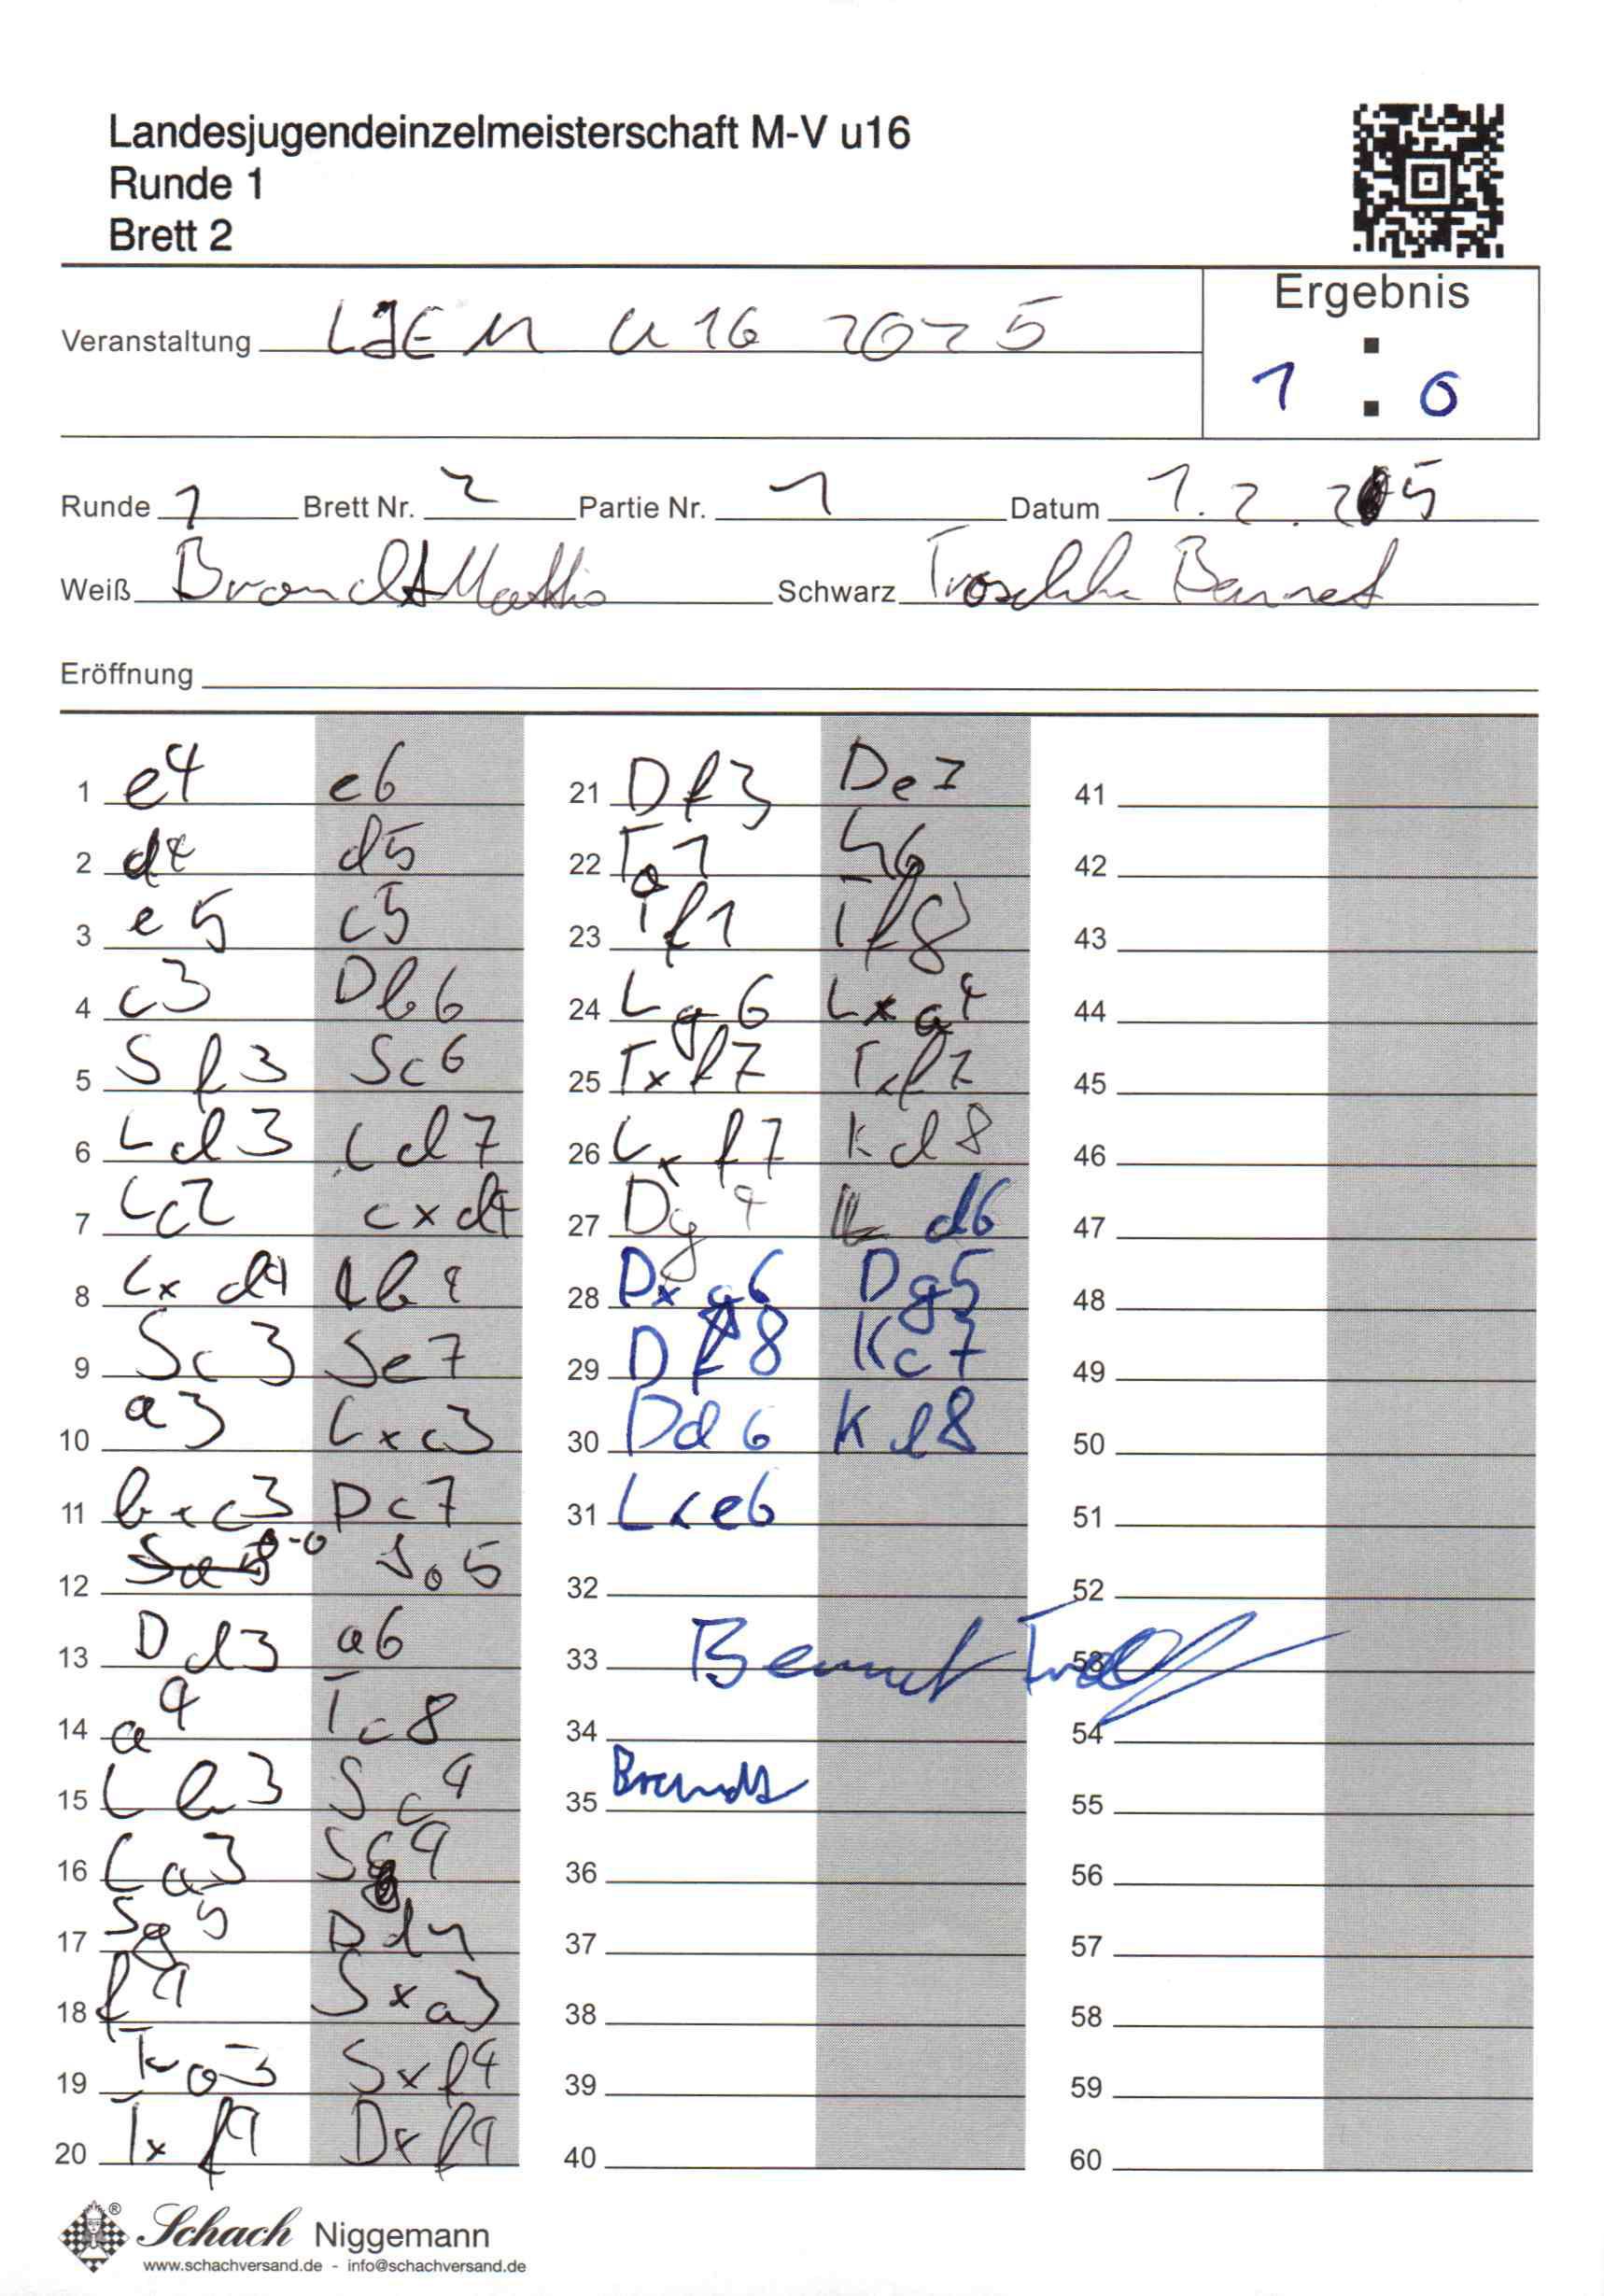 Landesjugendeinzelmeisterschaft M-V u16
Runde 1
Brett 2
Ergebnis
Veranstaltung LJEM U16 2025
1 : 0
Runde 1 Brett Nr. 2 Partie Nr. 1 Datum 1.2.25
Weiß Brandt Mattis Schwarz Bennet
Eröffnung
1 e4 e6
2 d4 d5
3 e5 c5
4 c3 Db6
5 Sf3 Sc6
6 Ld3 Ld7
7 Lc2 cxd4
8 cxd4 Lb4
9 Sc3 Se7
10 a3 Lxc3
11 bxc3 Dc7
12 0-0 Sa5
13 Dd3 a6
14 a4 Tc8
15 Lb3 Sc4
16 La3 
17 Sg5 Dd7
18 f4 Sxa3
19 Txa3 Sxf4
20 Txf4 Dxf4
21 Df3 De7
22 Ta1 h6
23 Tf1 Tf8
24 Lg6 Lxa4
25 Txf7 Txf7
26 Lxf7 Kd8
27 Dg4 d6
28 Dxg6 Dg5
29 Df8 Kc7
30 Dd6 Kd8
31 Lxe6
32
33 Bennet
34
35 Brandt
36
37
38
39
40
41
42
43
44
45
46
47
48
49
50
51
52
53
54
55
56
57
58
59
60
Schach Niggemann
www.schachversand.de - info@schachversand.de